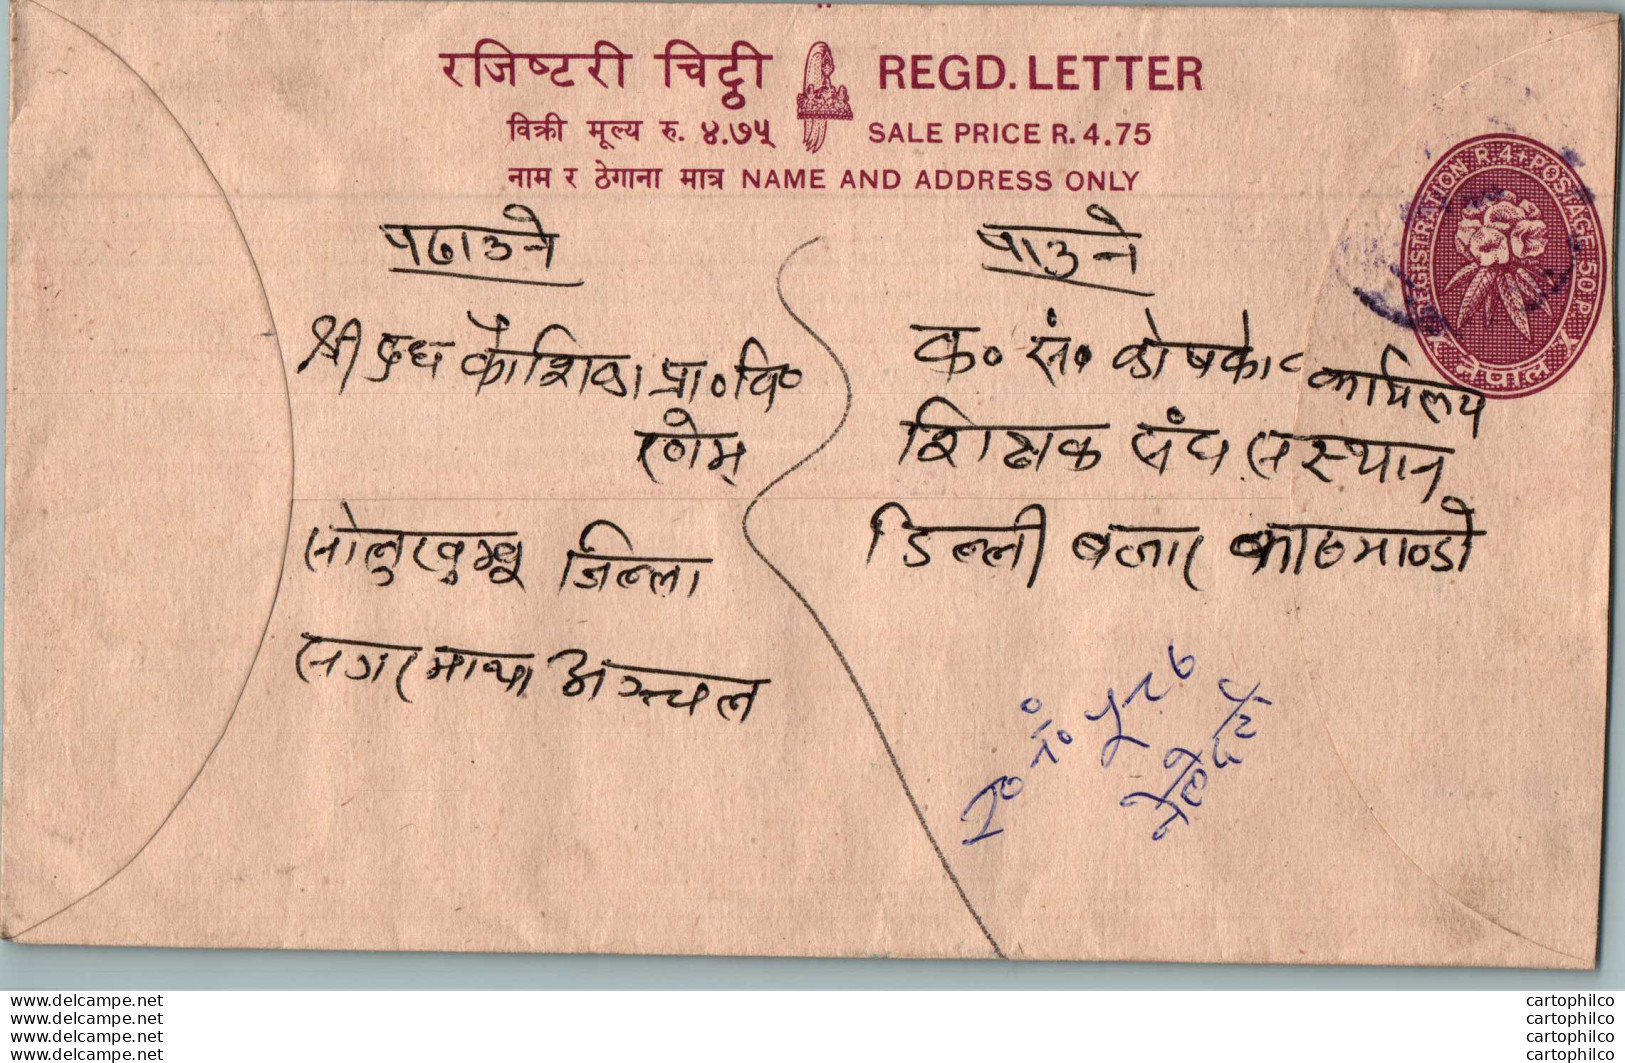 रजिष्टरी चिट्ठी REGD. LETTER
विक्री मूल्य रु. ४.७५ SALE PRICE R. 4.75
नाम र ठेगाना मात्र NAME AND ADDRESS ONLY
REGISTRATION R. 4 + POSTAGE 50 P.
नेपाल
पठाउने
श्री दुध कौशिका प्रा० वि०
सोलुखुम्बू जिल्ला
सगरमाथा अञ्चल
पाउने
क० सं० कोषको कार्यलय
शिक्षक संघ संस्थान
डिल्ली बजार काठमाण्डो
www.delcampe.net
www.delcampe.net
www.delcampe.net
www.delcampe.net
cartophilco
cartophilco
cartophilco
cartophilco